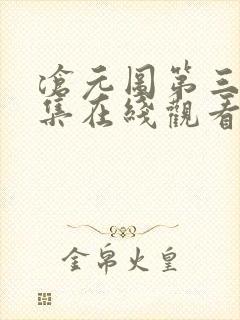 滄元圖第三
集在綫觀看
金帛火皇